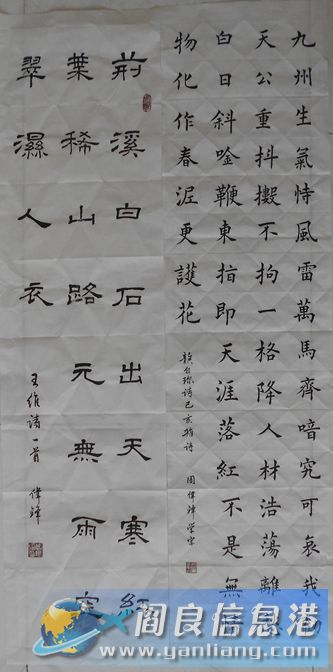 九州生氣恃風雷萬馬齊喑究可哀我勸
天公重抖擻不拘一格降人材浩蕩離愁
白日斜唫鞭東指即天涯落紅不是無情
物化作春泥更護花
龔自珍詩己亥雜詩 周偉鋒
荊溪白石出天寒紅
葉稀山路元無雨空
翠濕人衣
王維詩一首 偉鋒
阎良信息港
www.yanliang.com